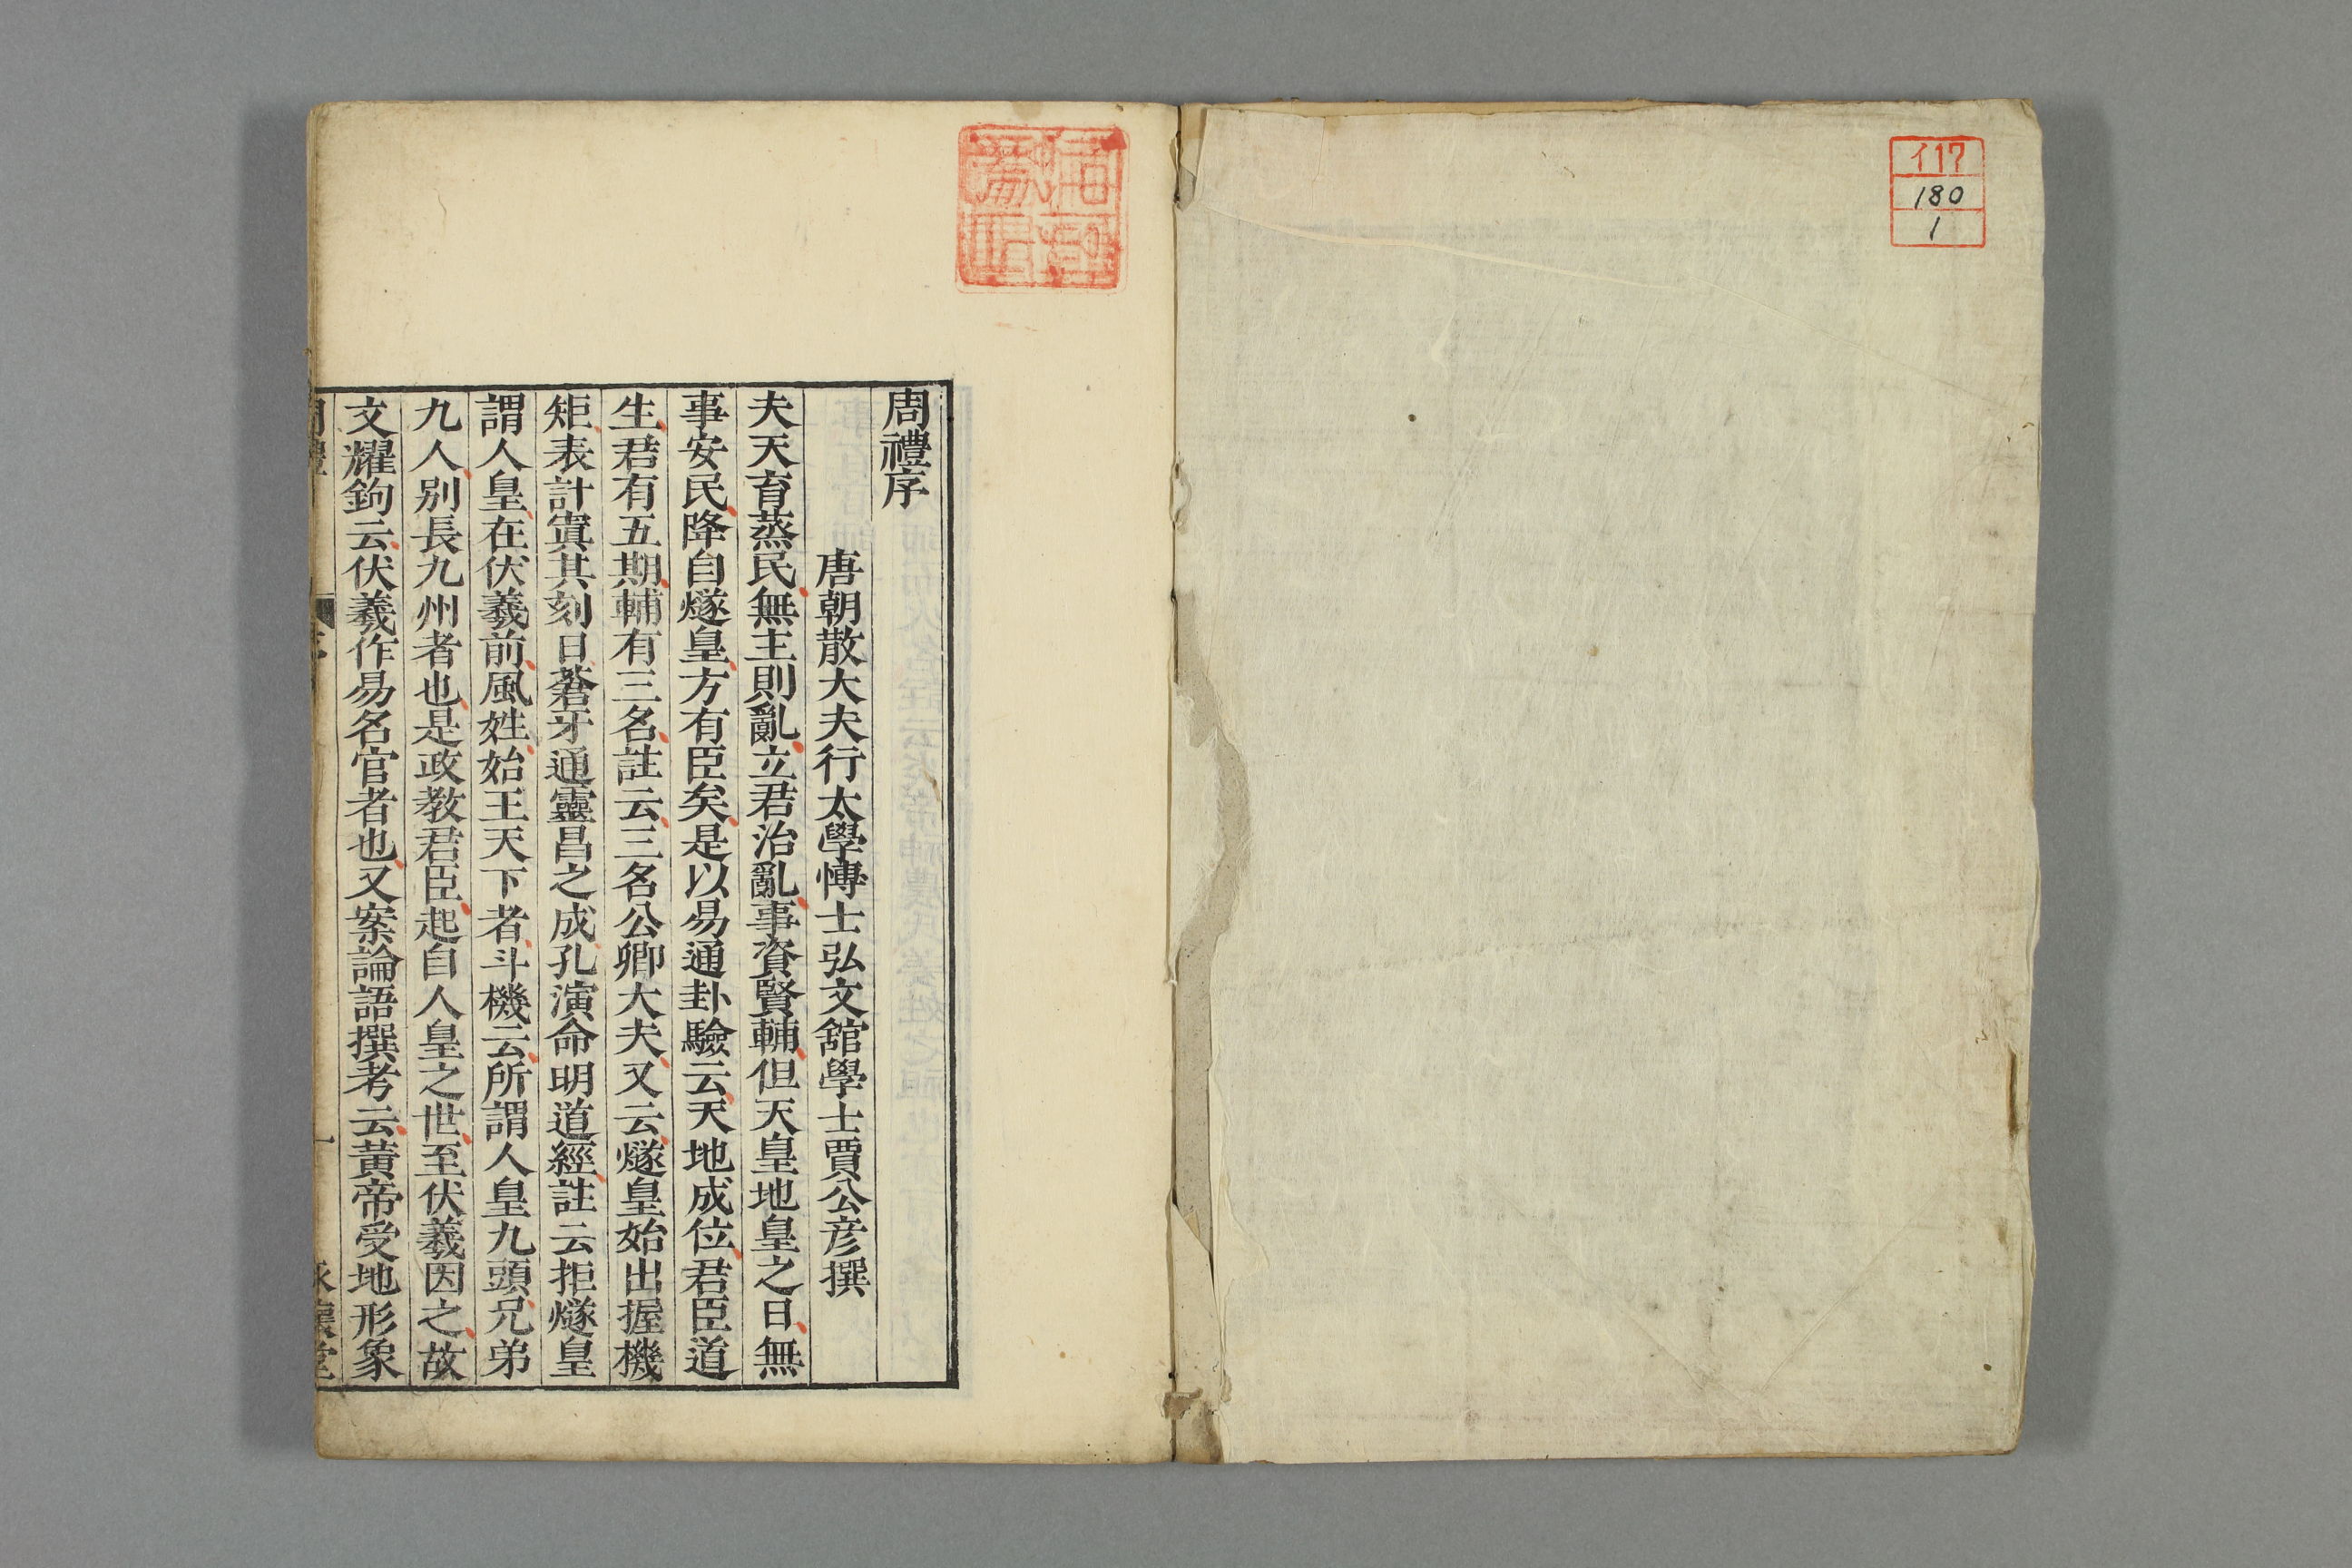 イ17
180
1
周禮序
唐朝散大夫行太學博士弘文舘學士賈公彦撰
夫天育蒸民無主則亂立君治亂事資賢輔但天皇地皇之日無
事安民降自燧皇方有臣矣是以易通卦驗云天地成位君臣道
生君有五期輔有三名註云三名公卿大夫又云燧皇始出握機
矩表計寘其刻日蒼牙通靈昌之成孔演命明道經註云拒燧皇
謂人皇在伏羲前風姓始王天下者斗機云所謂人皇九頭兄弟
九人別長九州者也是政教君臣起自人皇之世至伏羲因之故
文耀鉤云伏羲作易名官者也又案論語撰考云黃帝受地形象